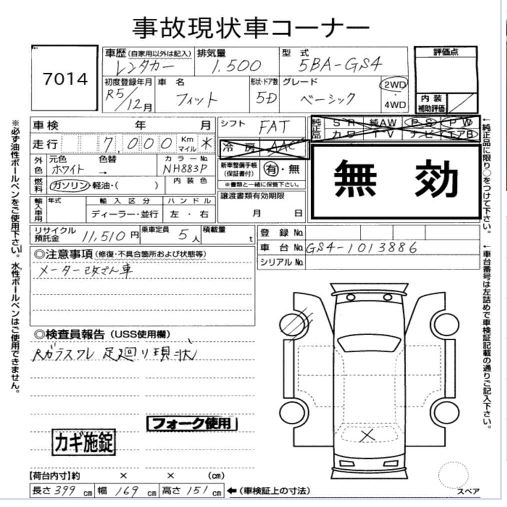 事故現状車コーナー
7014
車歴(自家用以外は記入) レンタカー
排気量 1,500
型式 5BA-GS4
評価点
初度登録年月 R5/12月
車名 フィット
形状・ドア数 5D
グレード ベーシック
2WD・4WD
内装補助評価
車検 年 月
シフト FAT
純正品 SR 純AW PS PW カワ TV ナビ エアB
走行 7,000 Km マイル *
冷房 AAC
無効
外色 元色 ホワイト → 色替
カラーNo. NH883P
新車整備手帳(保証書付) 有・無
※書類と一緒に保管下さい。
燃料 ガソリン・軽油・( )
内装色
譲渡書類有効期限
月 日
輸入車用 年式 輸入区分 ハンドル
ディーラー・並行 左・右
リサイクル預託金 11,510円
乗車定員 5人
積載量 t
登録No.
車台No. GS4-1013886
シリアルNo.
◎注意事項(修復・不具合箇所および状態等)
メーター改ざん車
◎検査員報告(USS使用欄)
Rガラスワレ 足廻り現状
フォーク使用
カギ施錠
【荷台内寸】約 × × (cm)
長さ 399 cm 幅 169 cm 高さ 151 cm ←(車検証上の寸法)
スペア
※必ず油性ボールペンをご使用下さい。水性ボールペンはご使用できません。
←純正品に限り○をつけて下さい。
←車台番号は左詰めで車検証記載の通りご記入下さい。